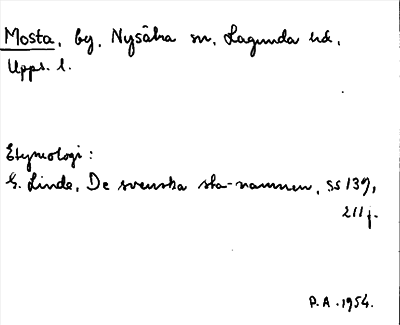 Mosta, by, Nysätra sn, Lagunda hd,
Upps. l.
Etymologi:
G. Linde, De svenska sta-namnen, ss 139,
211 f.
P.A. 1954.